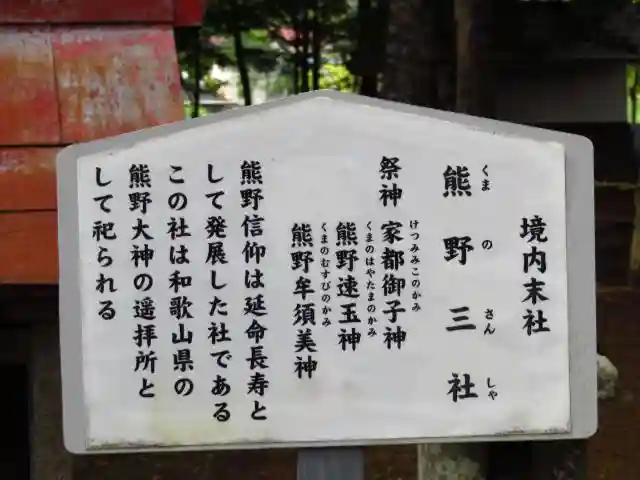 境内末社
熊野三社
くまのさんしゃ
祭神 家都御子神
けつみみこのかみ
熊野速玉神
くまのはやたまのかみ
熊野牟須美神
くまのむすびのかみ
熊野信仰は延命長寿と
して発展した社である
この社は和歌山県の
熊野大神の遥拝所と
して祀られる